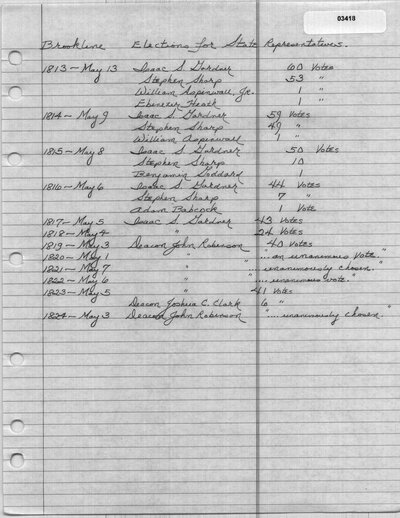 03418
Brookline Elections for State Representatives.
1813 - May 13 Isaac S. Gardner 60 Votes
Stephen Sharp 53 "
William Aspenwall, Jr. 1 "
Ebenezer Heath 1 "
1814 - May 9 Isaac S. Gardner 59 Votes
Stephen Sharp 49 "
William Aspenwall 1 "
1815 - May 8 Isaac S. Gardner 50 Votes
Stephen Sharp 10
Benjamin Goddard 1
1816 - May 6 Isaac S. Gardner 44 Votes
Stephen Sharp 7 "
Adam Babcock 1 Vote
1817 - May 5 Isaac S. Gardner 43 Votes
1818 - May 4 " 24 Votes
1819 - May 3 Deacon John Robinson 40 Votes
1820 - May 1 " "... an unanimous vote."
1821 - May 7 " " unanimously chosen."
1822 - May 6 " "... unanimous vote."
1823 - May 5 " 41 Votes
Deacon Joshua C. Clark 6 "
1824 - May 3 Deacon John Robinson ".... unanimously chosen."